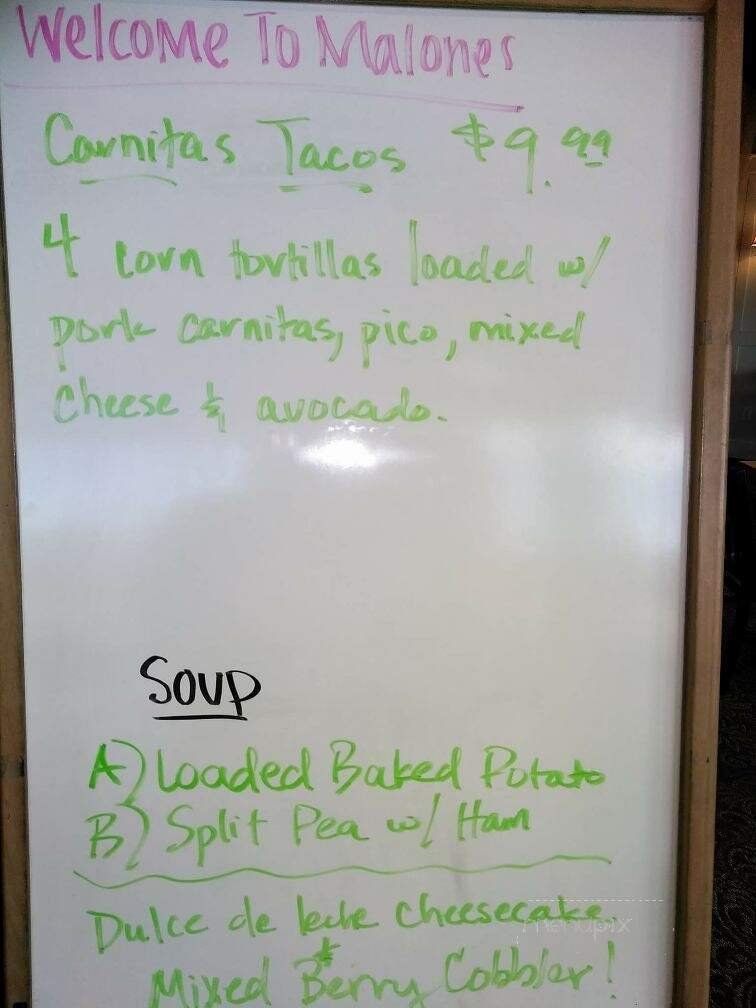 Welcome To Malones
Carnitas Tacos $9.99
4 corn tortillas loaded w/
pork carnitas, pico, mixed
cheese & avocado.
Soup
A) Loaded Baked Potato
B) Split Pea w/ Ham
Dulce de leche cheesecake
&
Mixed Berry Cobbler!
menupix